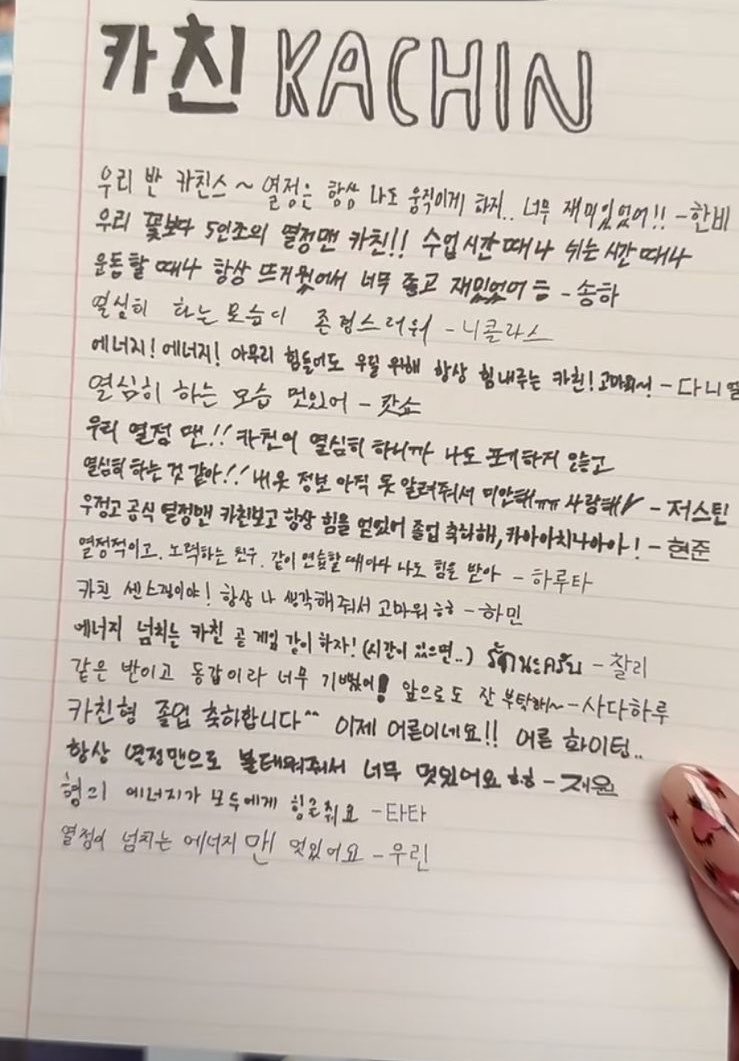 카친 KACHIN
우리 반 카친스~ 열정은 항상 나도 움직이게 하지.. 너무 재미있었어!! -한비
우리 꽃보다 5인조의 열정맨 카친!! 수업시간때나 쉬는시간때나
운동할 때나 항상 뜨거웠어서 너무 좋고 재밌었어 - 송하
열심히 하는 모습이 존경스러워 - 니콜라스
에너지! 에너지! 아무리 힘들어도 우릴 위해 항상 힘내주는 카친! 고마워서! - 다니엘
열심히 하는 모습 멋있어 - 팟쇼
우리 열정 맨!! 카친이 열심히 하니까 나도 포기하지 않고
열심히 하는 것 같아!! 내 옷 정보 아직 못 알려줘서 미안해ㅠㅠ 사랑해 - 저스틴
우정고 공식 열정맨 카친보고 항상 힘을 얻었어 졸업 축하해, 카아아치나아아! - 현준
열정적이고, 노력하는 친구. 같이 연습할 때마다 나도 힘을 받아 - 하루타
카친 센스쟁이야! 항상 나 생각해줘서 고마워 ㅎㅎ - 하민
에너지 넘치는 카친 곧 게임 같이 하자! (시간이 있으면..) รักนะครับ - 찰리
같은 반이고 동갑이라 너무 기뻤어! 앞으로도 잘 부탁해~ - 사다하루
카친형 졸업 축하합니다^^ 이제 어른이네요!! 어른 화이팅..
항상 열정맨으로 불태워줘서 너무 멋있어요 ㅎㅎ - 재원
형의 에너지가 모두에게 힘을 줘요 - 타타
열정이 넘치는 에너지 맨 멋있어요 - 우린